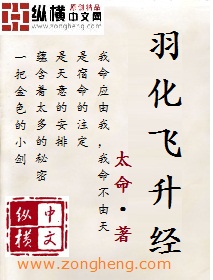 原创精品
纵横中文网
www.zongheng.com
羽化飞升经
太命·著
我命应由我，我命不由天
是宿命的注定
是天意的安排
蕴含着太多的秘密
一把金色的小剑
纵横
中文
www.zongheng.com